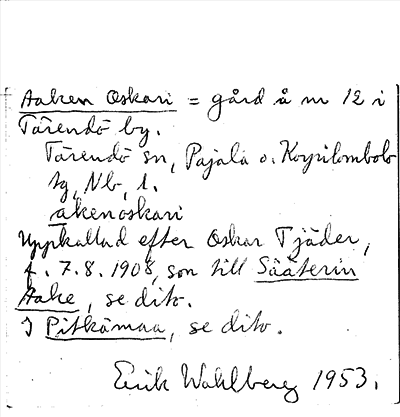 Aaken Oskari = gård å nr 12 i
Tärendö by.
Tärendö sn, Pajala o. Korpilombolo
tg, Nb, l.
akenoskari
Uppkallad efter Oskar Tjäder,
f. 7.8. 1908, son till Sääterin
Aake, se dito.
I Pitkämaa, se dito.
Erik Wahlberg 1953.